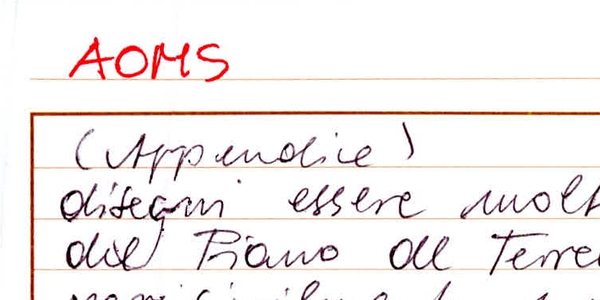 AOMS
(Appendice)
disegni essere molt
del Piano del Terre